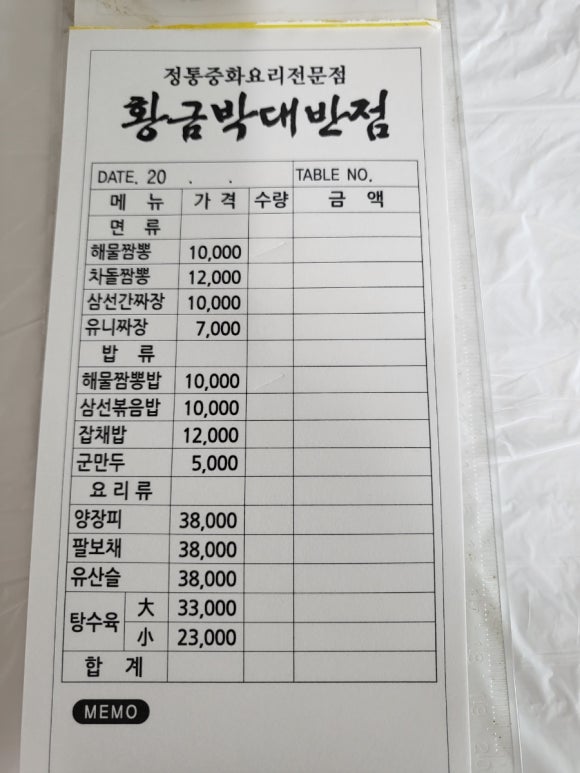 정통중화요리전문점
황금박대반점
DATE. 20 . . TABLE NO.
메 뉴 가 격 수량 금 액
면 류
해물짬뽕 10,000
차돌짬뽕 12,000
삼선간짜장 10,000
유니짜장 7,000
밥 류
해물짬뽕밥 10,000
삼선볶음밥 10,000
잡채밥 12,000
군만두 5,000
요 리 류
양장피 38,000
팔보채 38,000
유산슬 38,000
탕수육 大 33,000
小 23,000
합 계
MEMO